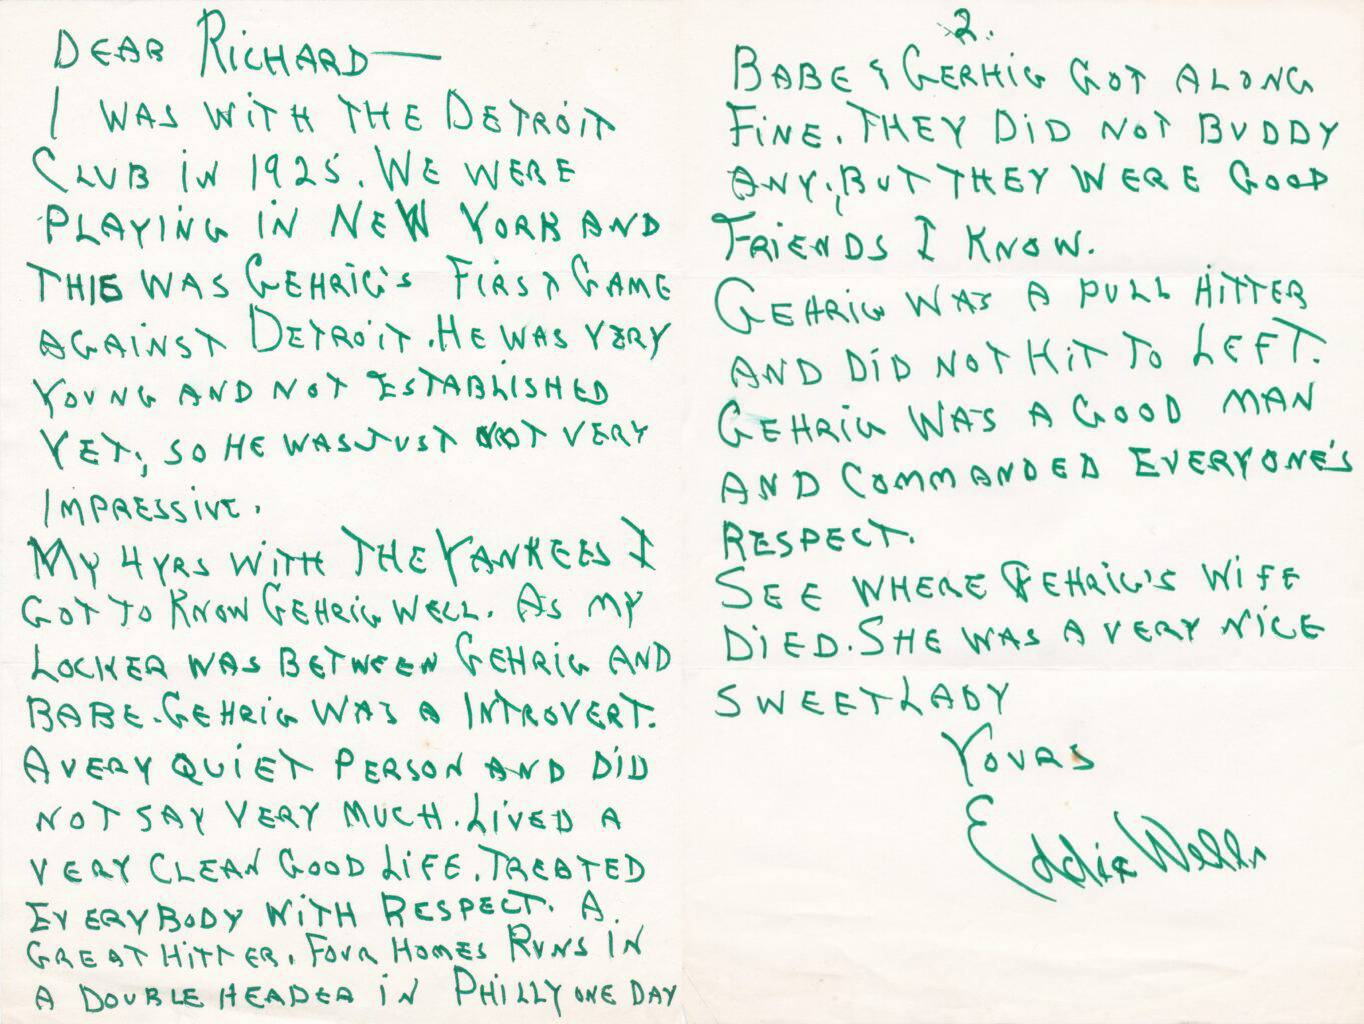 DEAR RICHARD—
I WAS WITH THE DETROIT
CLUB IN 1925. WE WERE
PLAYING IN NEW YORK AND
THIS WAS GEHRIG'S FIRST GAME
AGAINST DETROIT. HE WAS VERY
YOUNG AND NOT ESTABLISHED
YET; SO HE WAS JUST NOT VERY
IMPRESSIVE.
MY 4 YRS WITH THE YANKEES I
GOT TO KNOW GEHRIG WELL. AS MY
LOCKER WAS BETWEEN GEHRIG AND
BABE. GEHRIG WAS A INTROVERT.
A VERY QUIET PERSON AND DID
NOT SAY VERY MUCH. LIVED A
VERY CLEAN GOOD LIFE. TREATED
EVERYBODY WITH RESPECT. A
GREAT HITTER. FOUR HOMES RUNS IN
A DOUBLE HEADER IN PHILLY ONE DAY
2.
BABE & GERHIG GOT ALONG
FINE. THEY DID NOT BUDDY
ANY; BUT THEY WERE GOOD
FRIENDS I KNOW.
GEHRIG WAS A PULL HITTER
AND DID NOT HIT TO LEFT.
GEHRIG WAS A GOOD MAN
AND COMMANDED EVERYONE'S
RESPECT.
SEE WHERE GEHRIG'S WIFE
DIED. SHE WAS A VERY NICE
SWEET LADY
YOURS
Eddie Wells